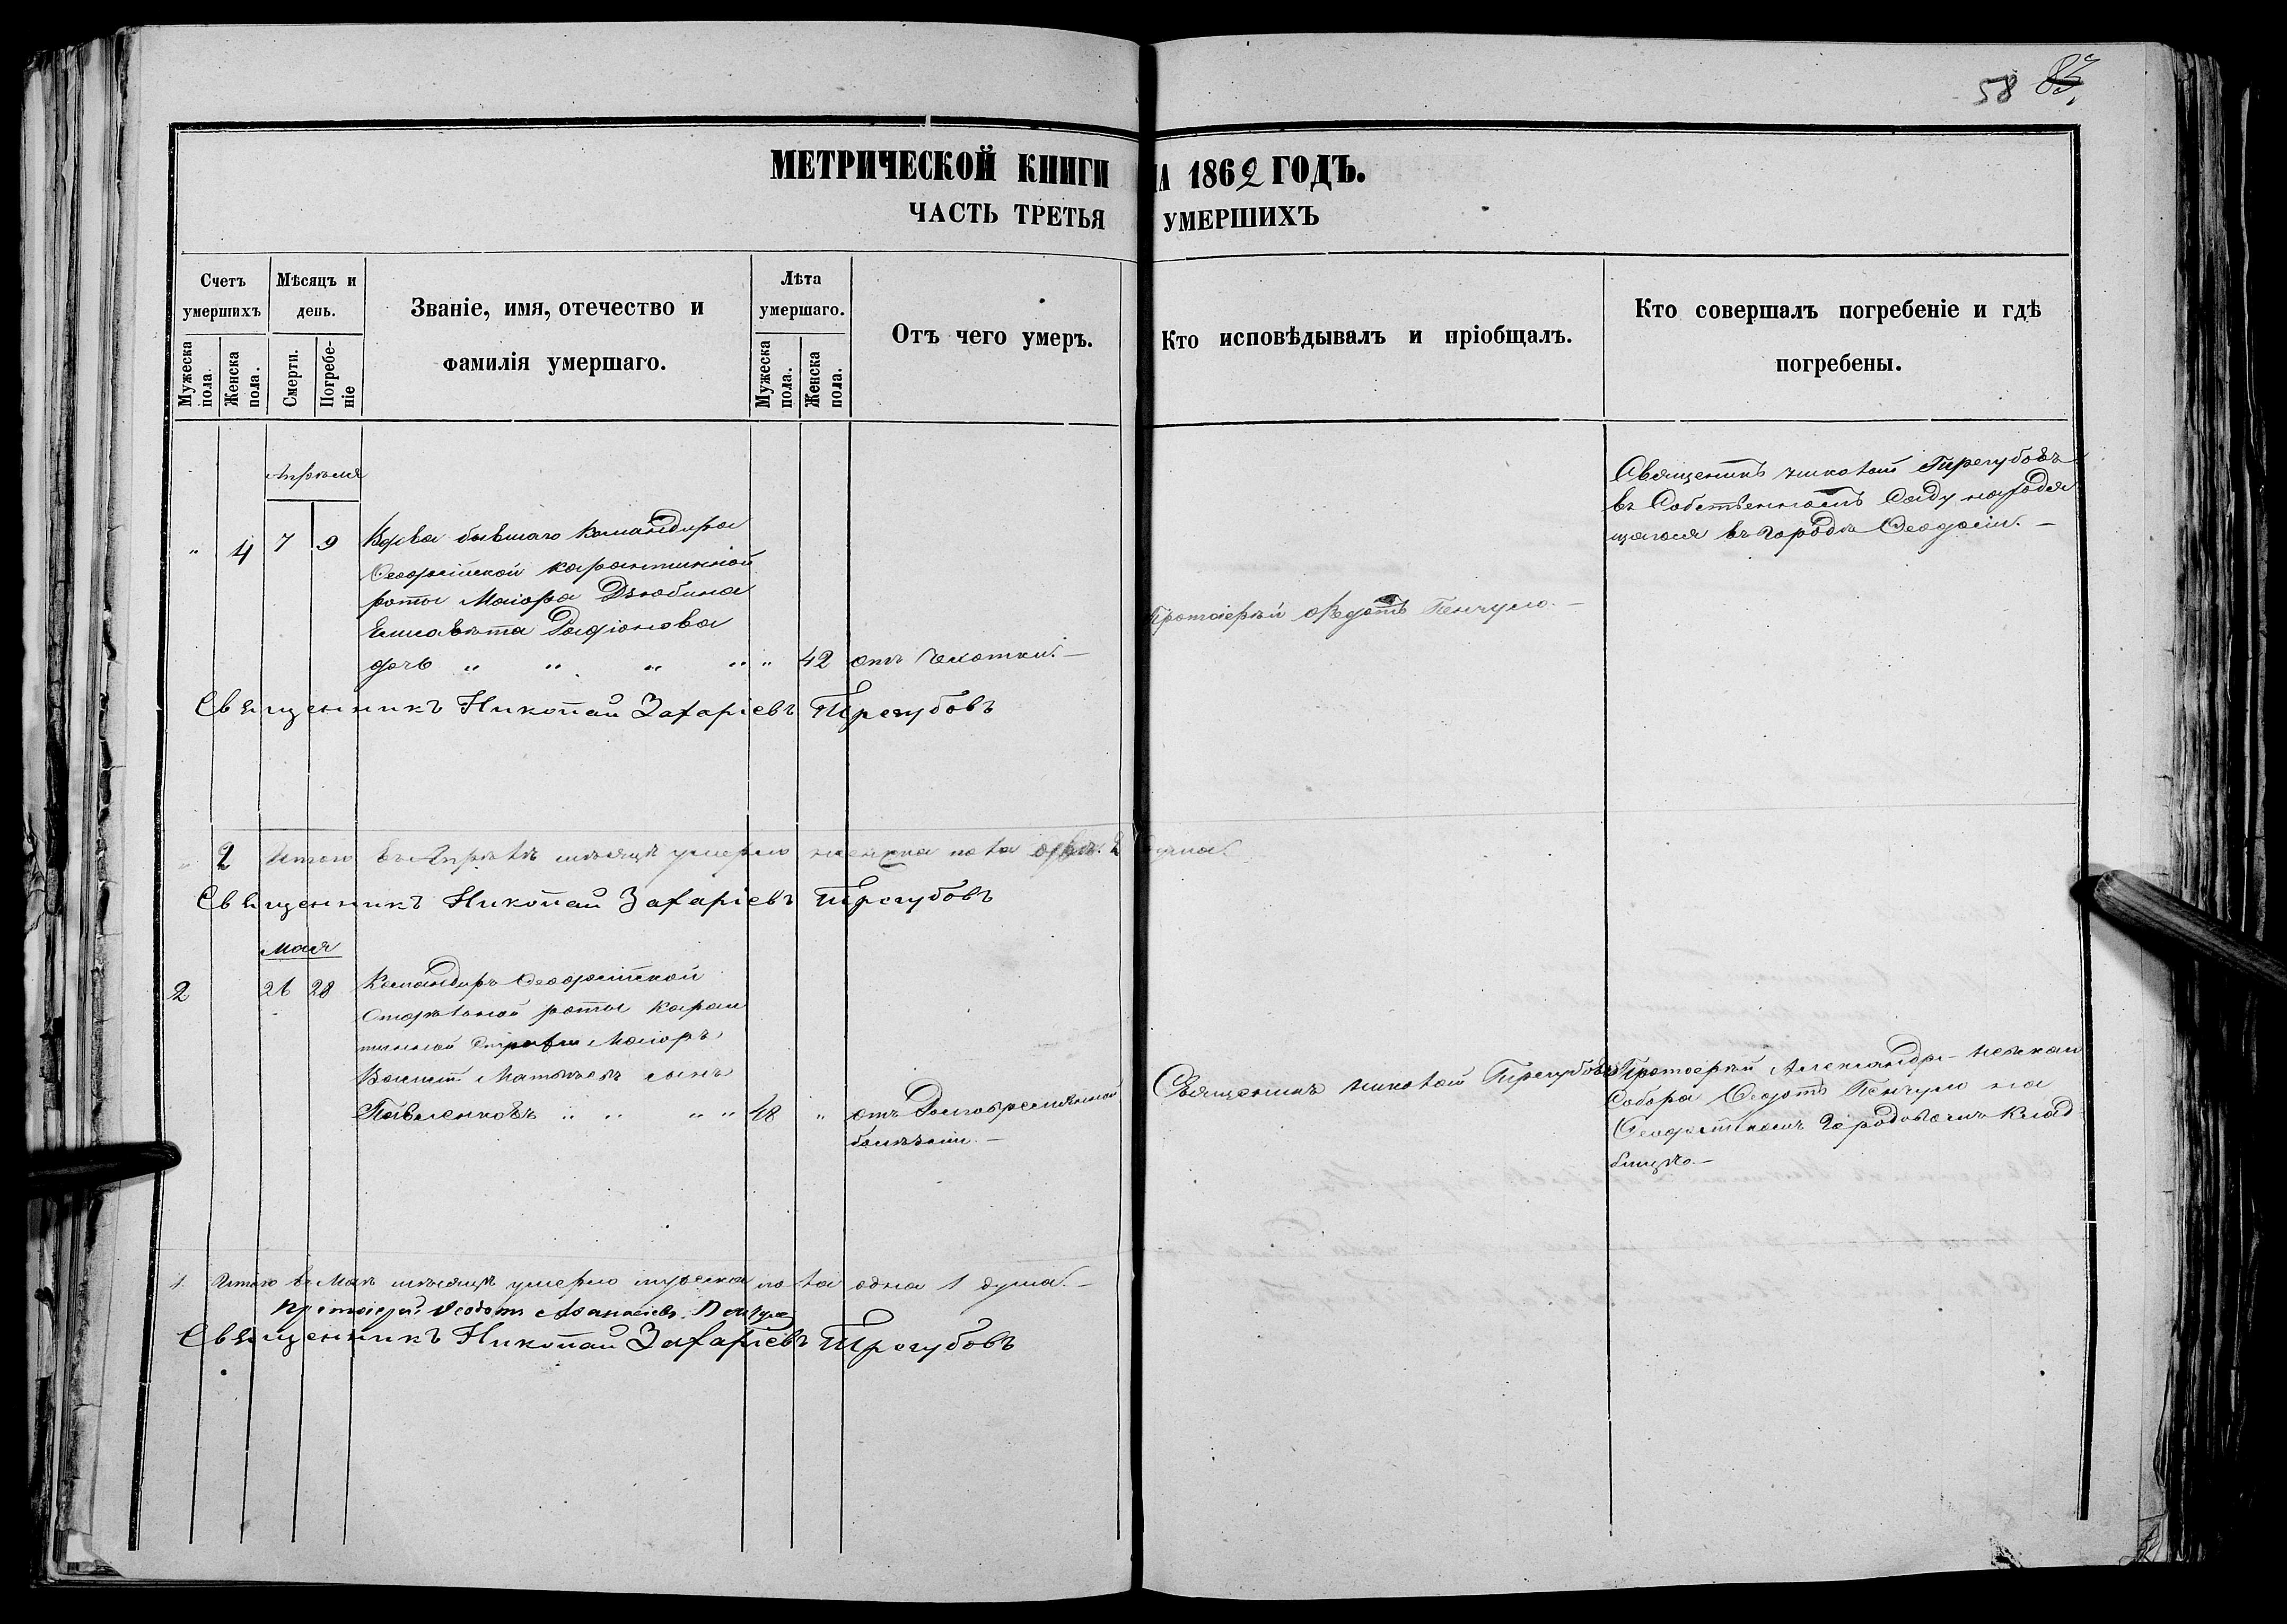 58 83
МЕТРИЧЕСКОЙ КНИГИ НА 1862 ГОДЪ.
ЧАСТЬ ТРЕТЬЯ УМЕРШИХЪ
Счетъ умершихъ
Мѣсяцъ и день.
Званіе, имя, отечество и фамилія умершаго.
Лѣта умершаго.
Отъ чего умеръ.
Кто исповѣдывалъ и пріобщалъ.
Кто совершалъ погребеніе и гдѣ погребены.
Мужеска пола.
Женска пола.
Смерти.
Погребеніе
Мужеска пола.
Женска пола.
Апрѣля
" 4 7 9 Вдова бывшаго Командира
Ѳеодосійской карантинной
роты Маіора Дзюбина
Елисавета Радіонова
дочь " " " " " 42 отъ чахотки. —
Протоіерей Ѳеодотъ Пенчуло. —
Священникъ Николай Трегубовъ
въ Собственномъ Саду находя
щагося въ городѣ Ѳеодосіи. —
Священникъ Николай Захаріевъ Трегубовъ
" 2 Итого въ Апрѣлѣ мѣсяцѣ умерло женска пола 2 душа.
Священникъ Николай Захаріевъ Трегубовъ
Мая
2 26 28 Командиръ Ѳеодосійской
Отдѣльной роты Каран
тинной Стражи Маіоръ
Матвѣевъ сынъ
Павленковъ " " " " 48 " отъ Долговременной
болѣзни. —
Священникъ Николай Трегубовъ
Протоерей Александро-Невскаго
Собора Ѳеодотъ Пенчуло на
Ѳеодосійскомъ Городовомъ Клад
бищѣ. —
1 Итого въ Маѣ мѣсяцѣ умерло мужеска пола одна 1 душа. —
Протоіерей Ѳеодотъ Аѳанасіевъ Пенчуло
Священникъ Николай Захаріевъ Трегубовъ